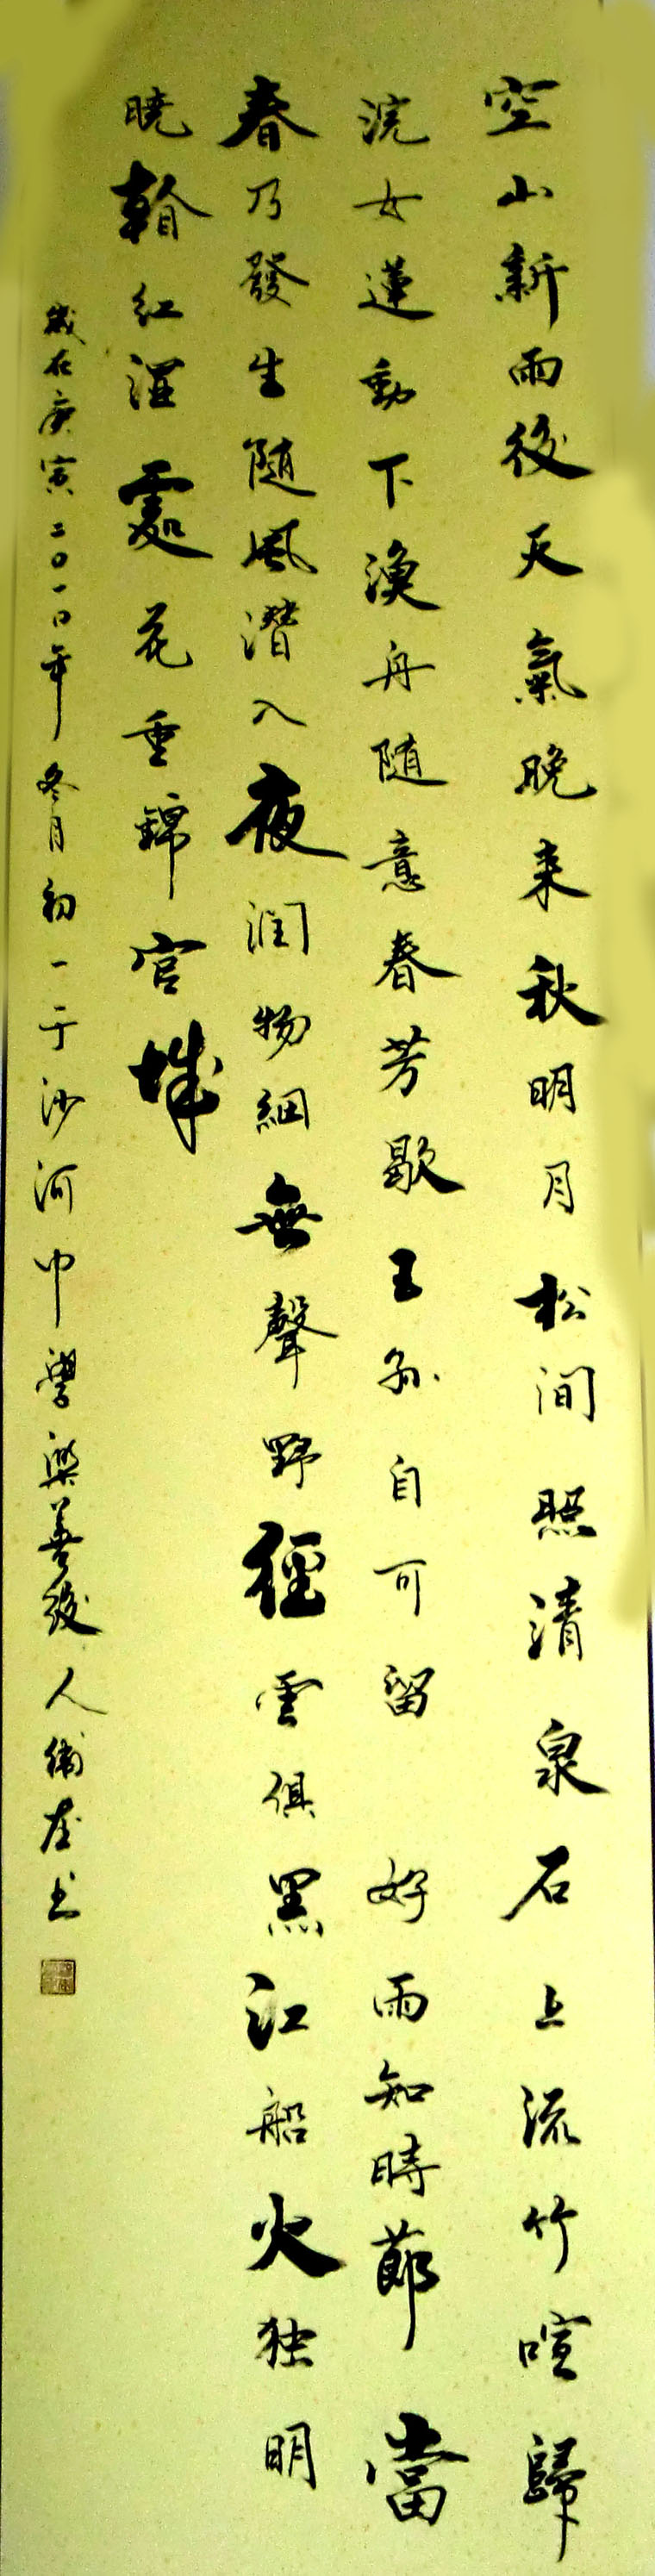 空山新雨後天氣晚来秋明月松间照清泉石上流竹喧歸
浣女蓮動下漁舟随意春芳歇王孙自可留好雨知時節當
春乃發生随風潛入夜润物細無聲野徑雲俱黑江船火独明
曉看紅溼處花重錦官城
歲在庚寅二〇一〇年冬月初一于沙河中學樂善後人衛左书